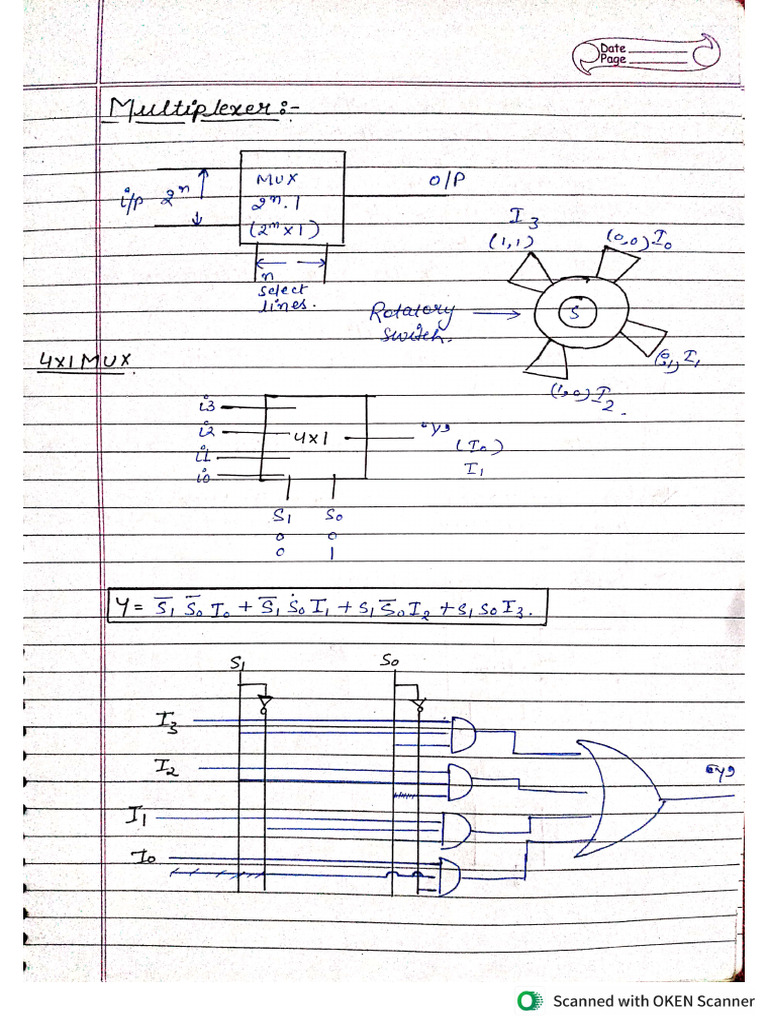 Date
Page
Multiplexer:-
i/p 2ⁿ
MUX
2ⁿ.1
(2ⁿx1)
O/P
n
select
lines.
I3
(1,1)
(0,0) I0
Rotatory
switch.
S
I1
(1,0) I2.
4x1 MUX.
i3
i2
i1
i0
4x1
"y"
(I0)
I1
S1 S0
0 0
0 1
Y = S̅1 S̅0 I0 + S̅1 S0 I1 + S1 S̅0 I2 + S1 S0 I3.
S1 S0
I3
I2
I1
I0
"y"
Scanned with OKEN Scanner